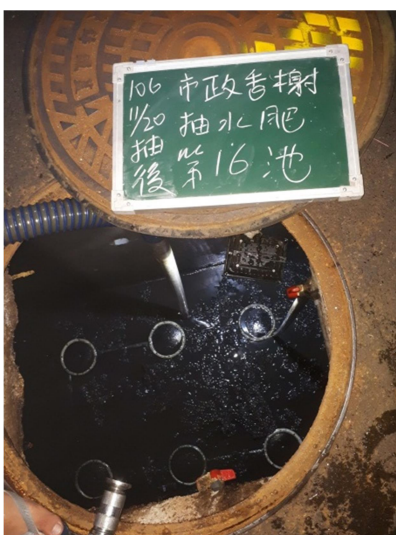 106 市政香榭
11/20 抽水肥
抽後 第16池